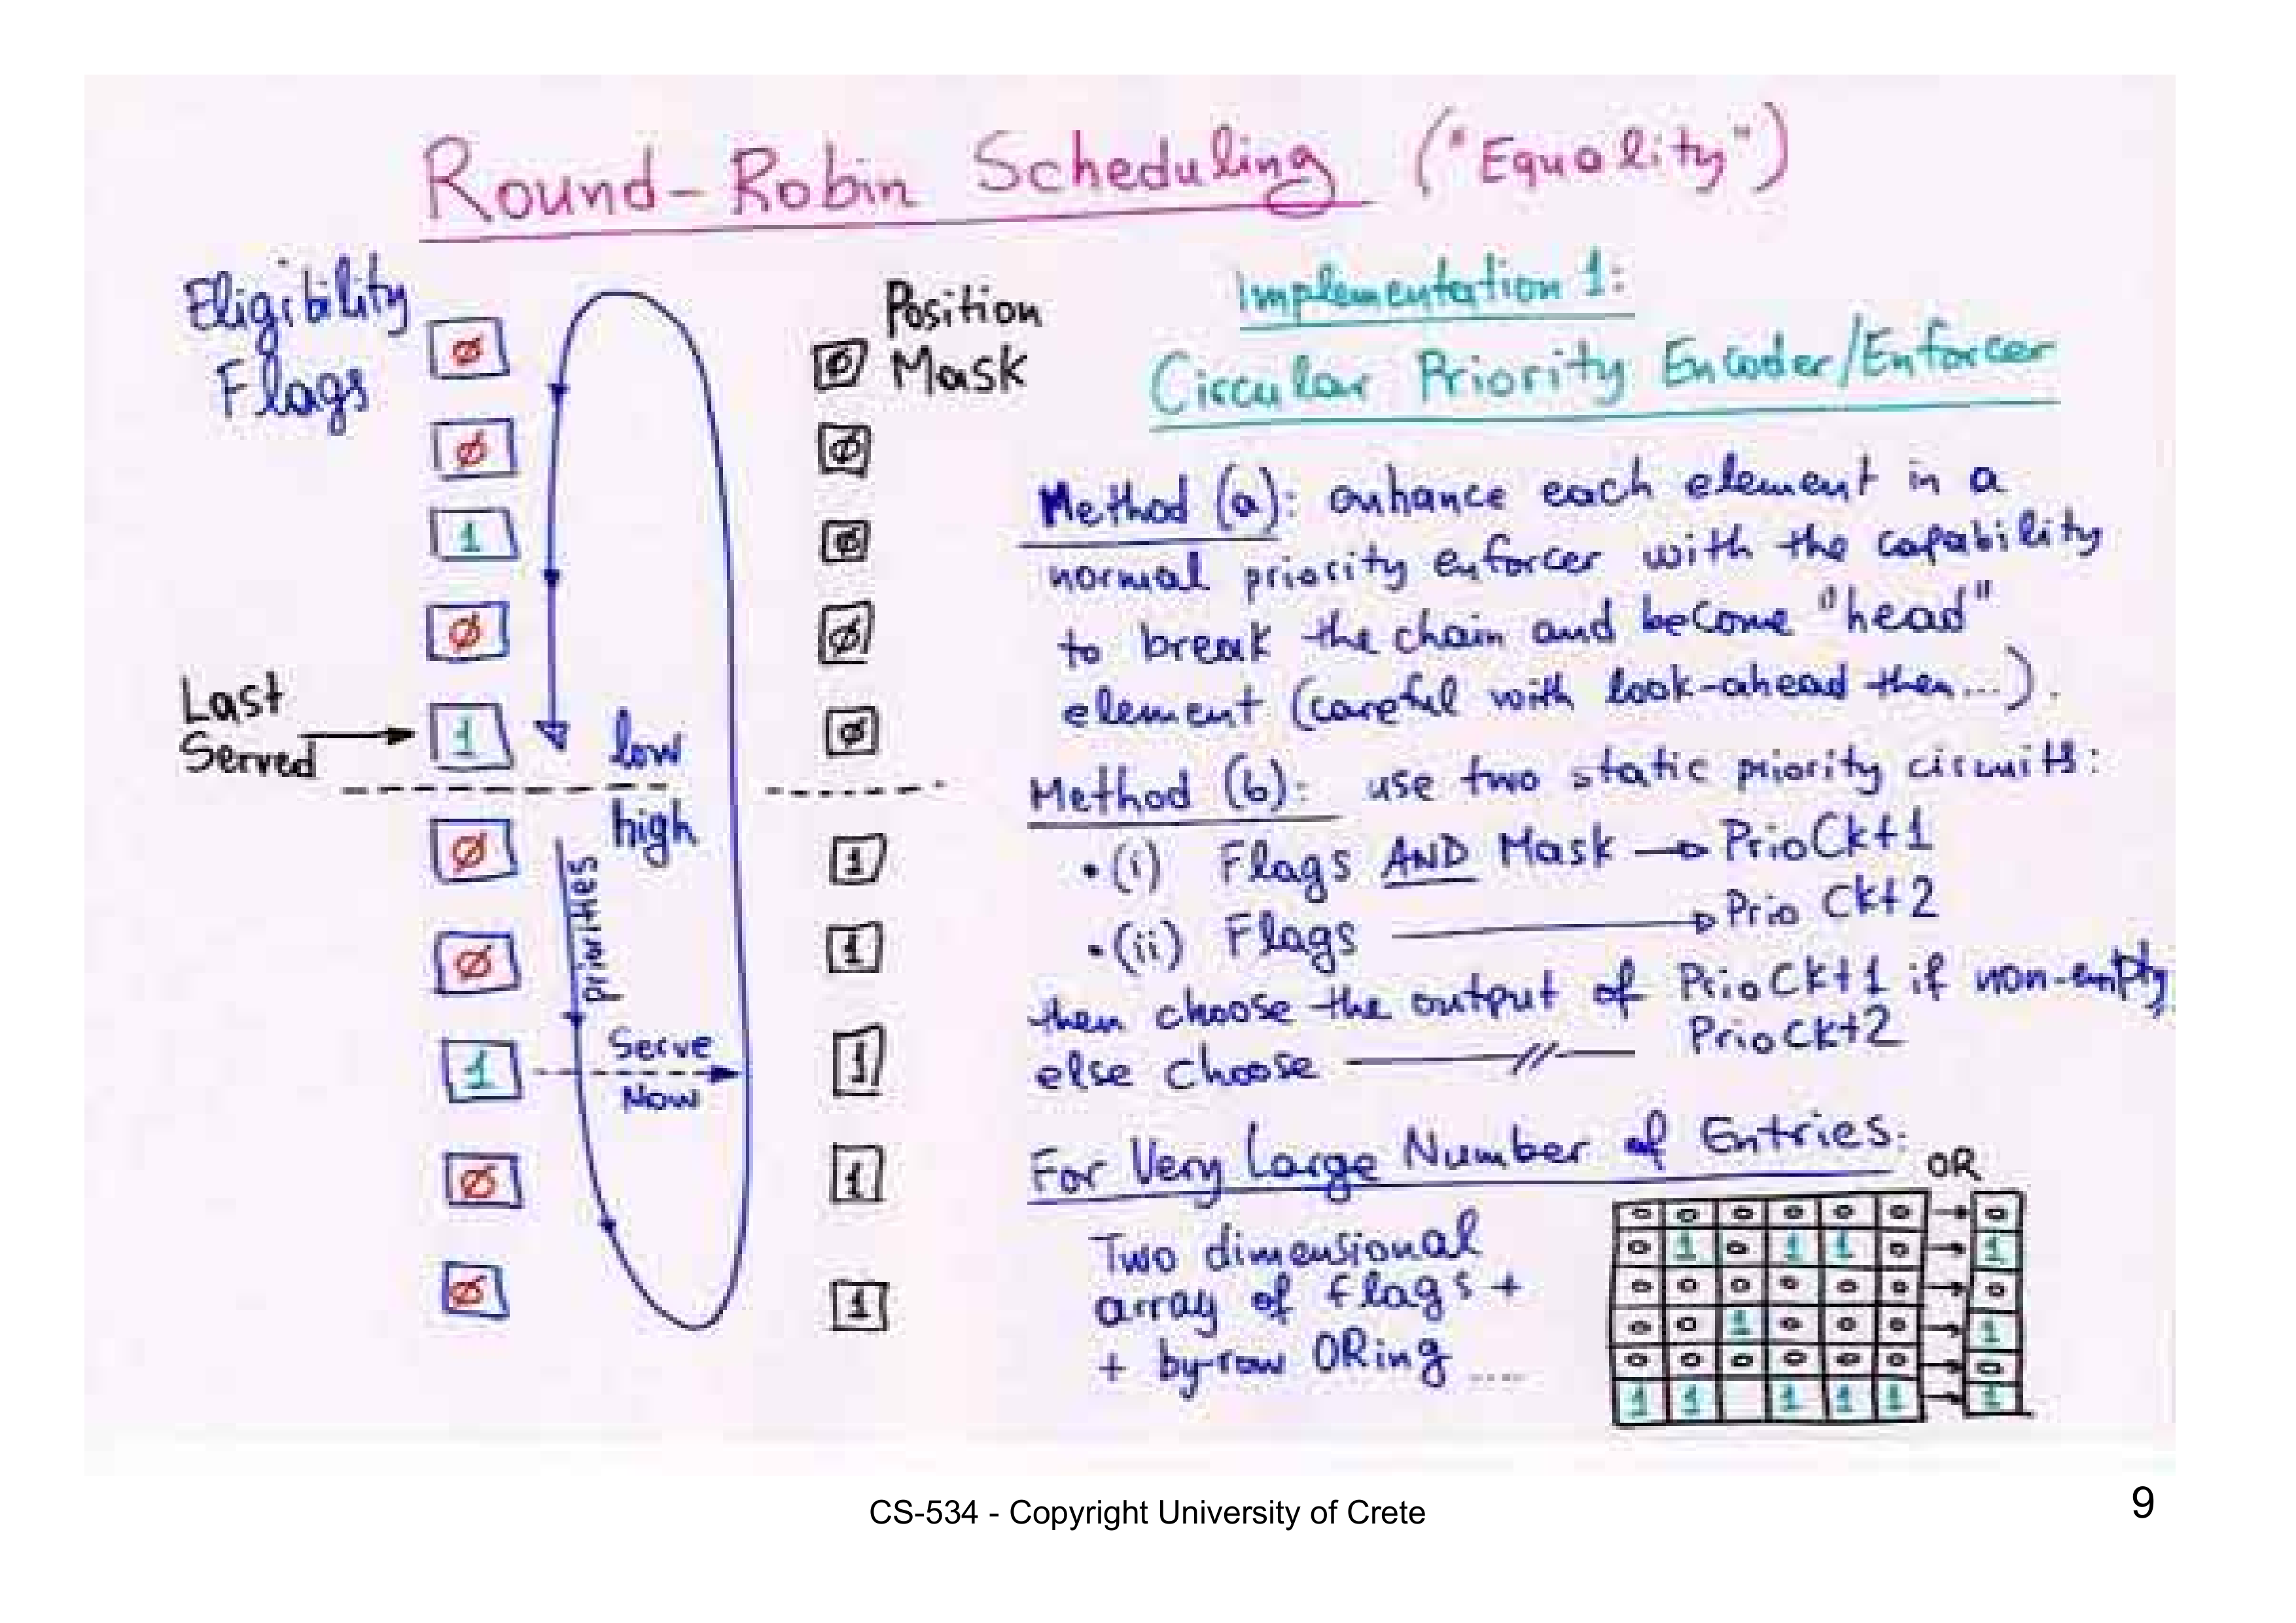 Round-Robin Scheduling ("Equality")
Eligibility
Flags
Ø
Ø
1
Ø
Last
Served
1
low
high
Ø
Ø
priorities
1
Serve
Now
Ø
Ø
Position
Mask
Ø
Ø
Ø
Ø
Ø
1
1
1
1
1
Implementation 1:
Circular Priority Encoder/Enforcer
Method (a): enhance each element in a
normal priority enforcer with the capability
to break the chain and become "head"
element (careful with look-ahead then...).
Method (b): use two static priority circuits:
• (i) Flags AND Mask → PrioCkt1
• (ii) Flags → Prio Ckt2
then choose the output of PrioCkt1 if non-empty,
else choose —//— PrioCkt2
For Very Large Number of Entries:
Two dimensional
array of flags +
+ by-row ORing ....
OR
0 0 0 0 0 0 → 0
0 1 0 1 1 0 → 1
0 0 0 0 0 0 → 0
0 0 1 0 0 0 → 1
0 0 0 0 0 0 → 0
1 1 1 1 1 → 1
CS-534 - Copyright University of Crete
9